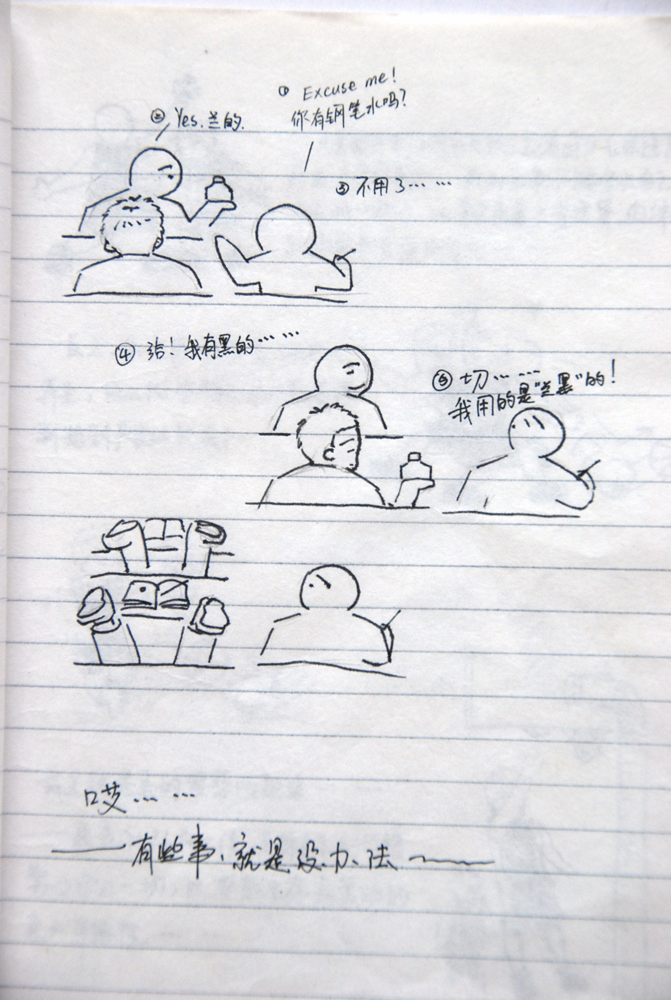 ① Excuse me!
你有钢笔水吗?
② Yes.兰的.
③ 不用了……
④ 给!我有黑的……
⑤ 切……
我用的是"兰黑"的!
哎……
——有些事、就是没办法~